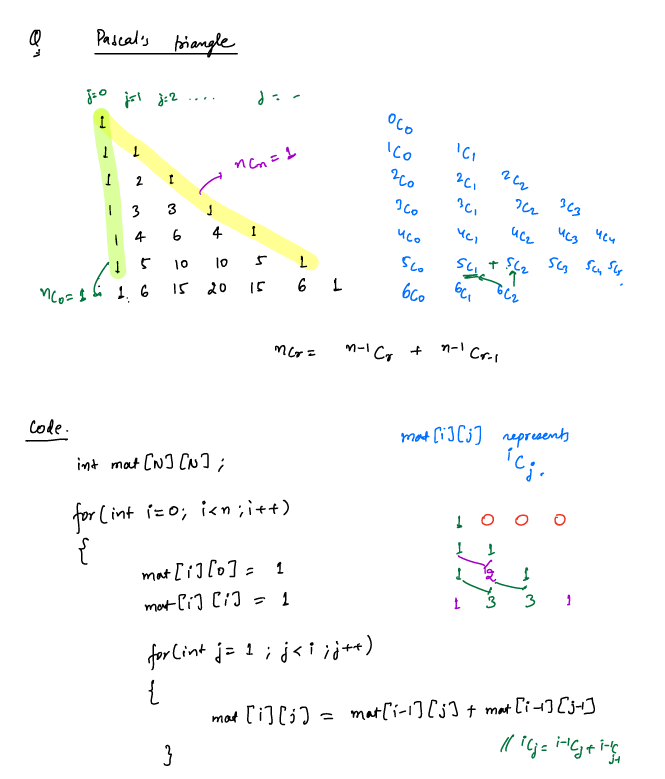 Q3 Pascal's triangle
j=0 j=1 j=2 .... j = -
1
1 1
1 2 1
1 3 3 1
1 4 6 4 1
1 5 10 10 5 1
1 6 15 20 15 6 1
nCn = 1
nC0 = 1
⁰C₀
¹C₀ ¹C₁
²C₀ ²C₁ ²C₂
³C₀ ³C₁ ³C₂ ³C₃
⁴C₀ ⁴C₁ ⁴C₂ ⁴C₃ ⁴C₄
⁵C₀ ⁵C₁ + ⁵C₂ ⁵C₃ ⁵C₄ ⁵C₅
⁶C₀ ⁶C₁ ⁶C₂
nCr = n-1Cr + n-1Cr-1
Code.
int mat[N][N];
for(int i=0; i<n; i++)
{
mat[i][0] = 1
mat[i][i] = 1
for(int j=1; j<i; j++)
{
mat[i][j] = mat[i-1][j] + mat[i-1][j-1]
// iCj = i-1Cj + i-1Cj-1
}
mat[i][j] represents
iCj.
1 0 0 0
1 1
1 2 1
1 3 3 1